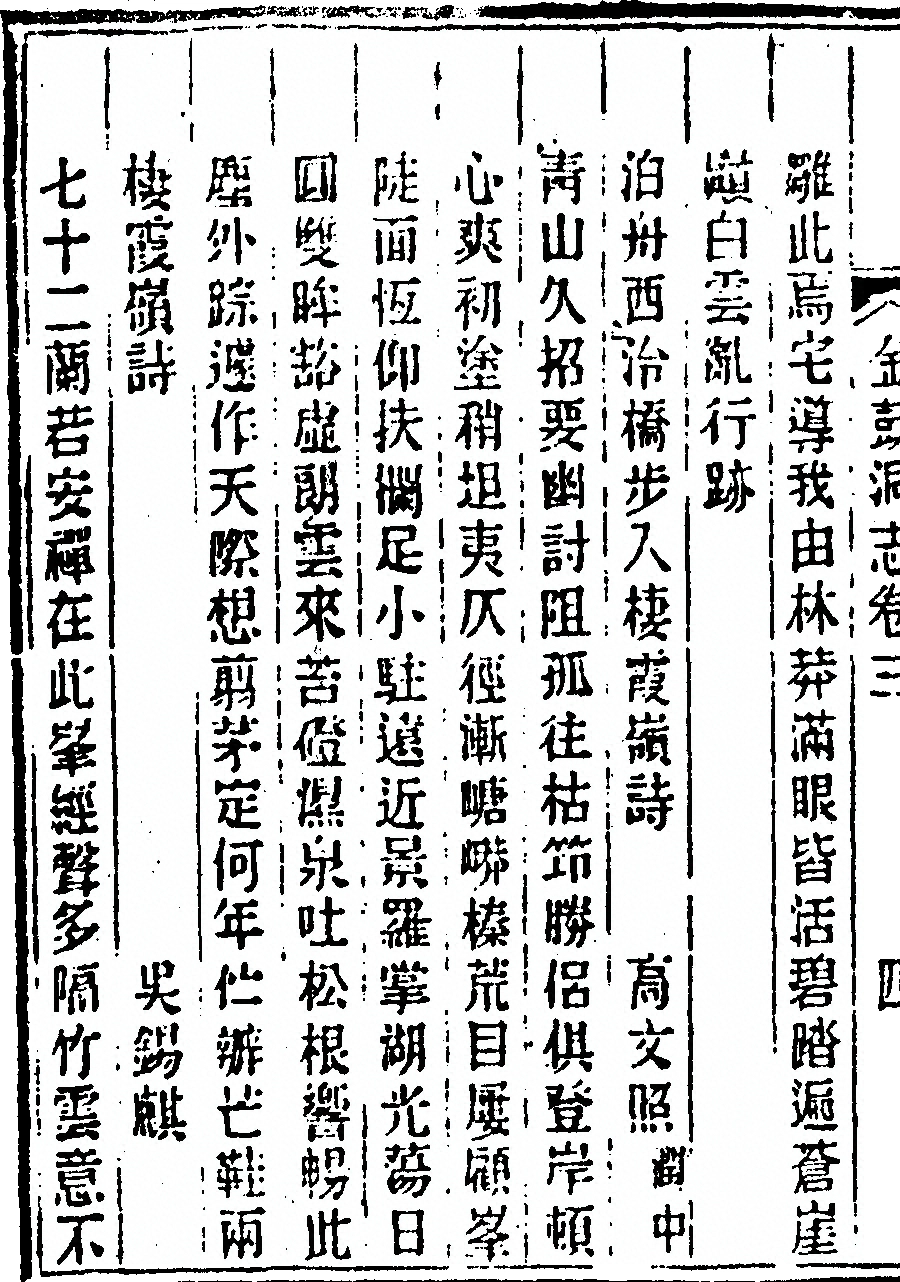 金鼓洞志卷三 四
雛此焉宅導我由林莽滿眼皆活碧踏遍蒼崖
巔白雲亂行跡
泊舟西泠橋步入棲霞嶺詩 高文照 潤中
靑山久招要幽討阻孤往枯笻勝侶俱登岸頓
心爽初塗稍坦夷仄徑漸嵣㟐榛荒目屢顧峯
陡面恆仰扶欄足小駐遠近景羅掌湖光蕩日
圓雙眸豁虛朗雲來苔磴濕泉吐松根響暢此
塵外踪遽作天際想剪茅定何年伫辦芒鞋兩
棲霞嶺詩 吳錫麒
七十二蘭若安禪在此峯經聲多隔竹雲意不